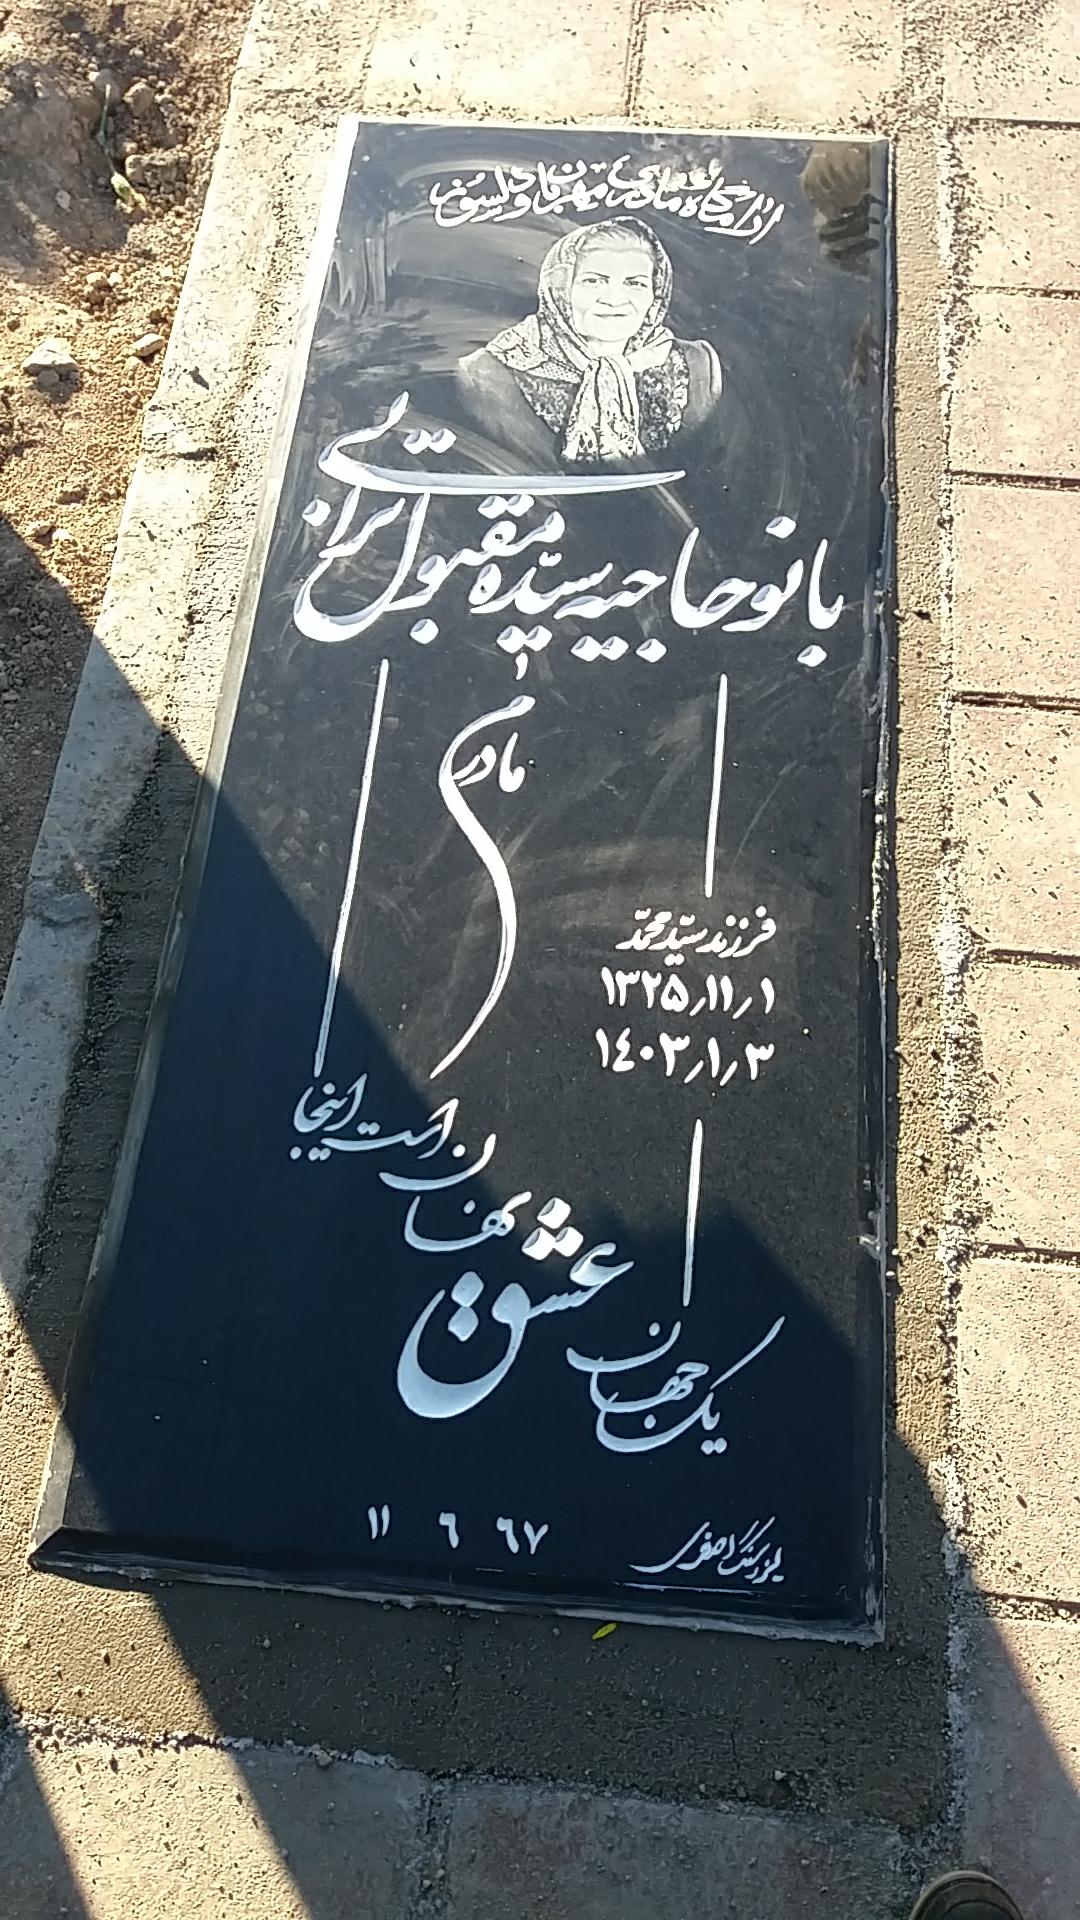 آرامگاه مادری مهربان و دلسوز
بانو حاجیه سیّده مقبول ترابی
مادرم
فرزند سیّد محمّد
۱۳۲۵/۱۱/۱
۱۴۰۳/۱/۳
یک جهان عشق نهان است اینجا
۶۷ ۶ ۱۱
لیزر سنگ اصغری